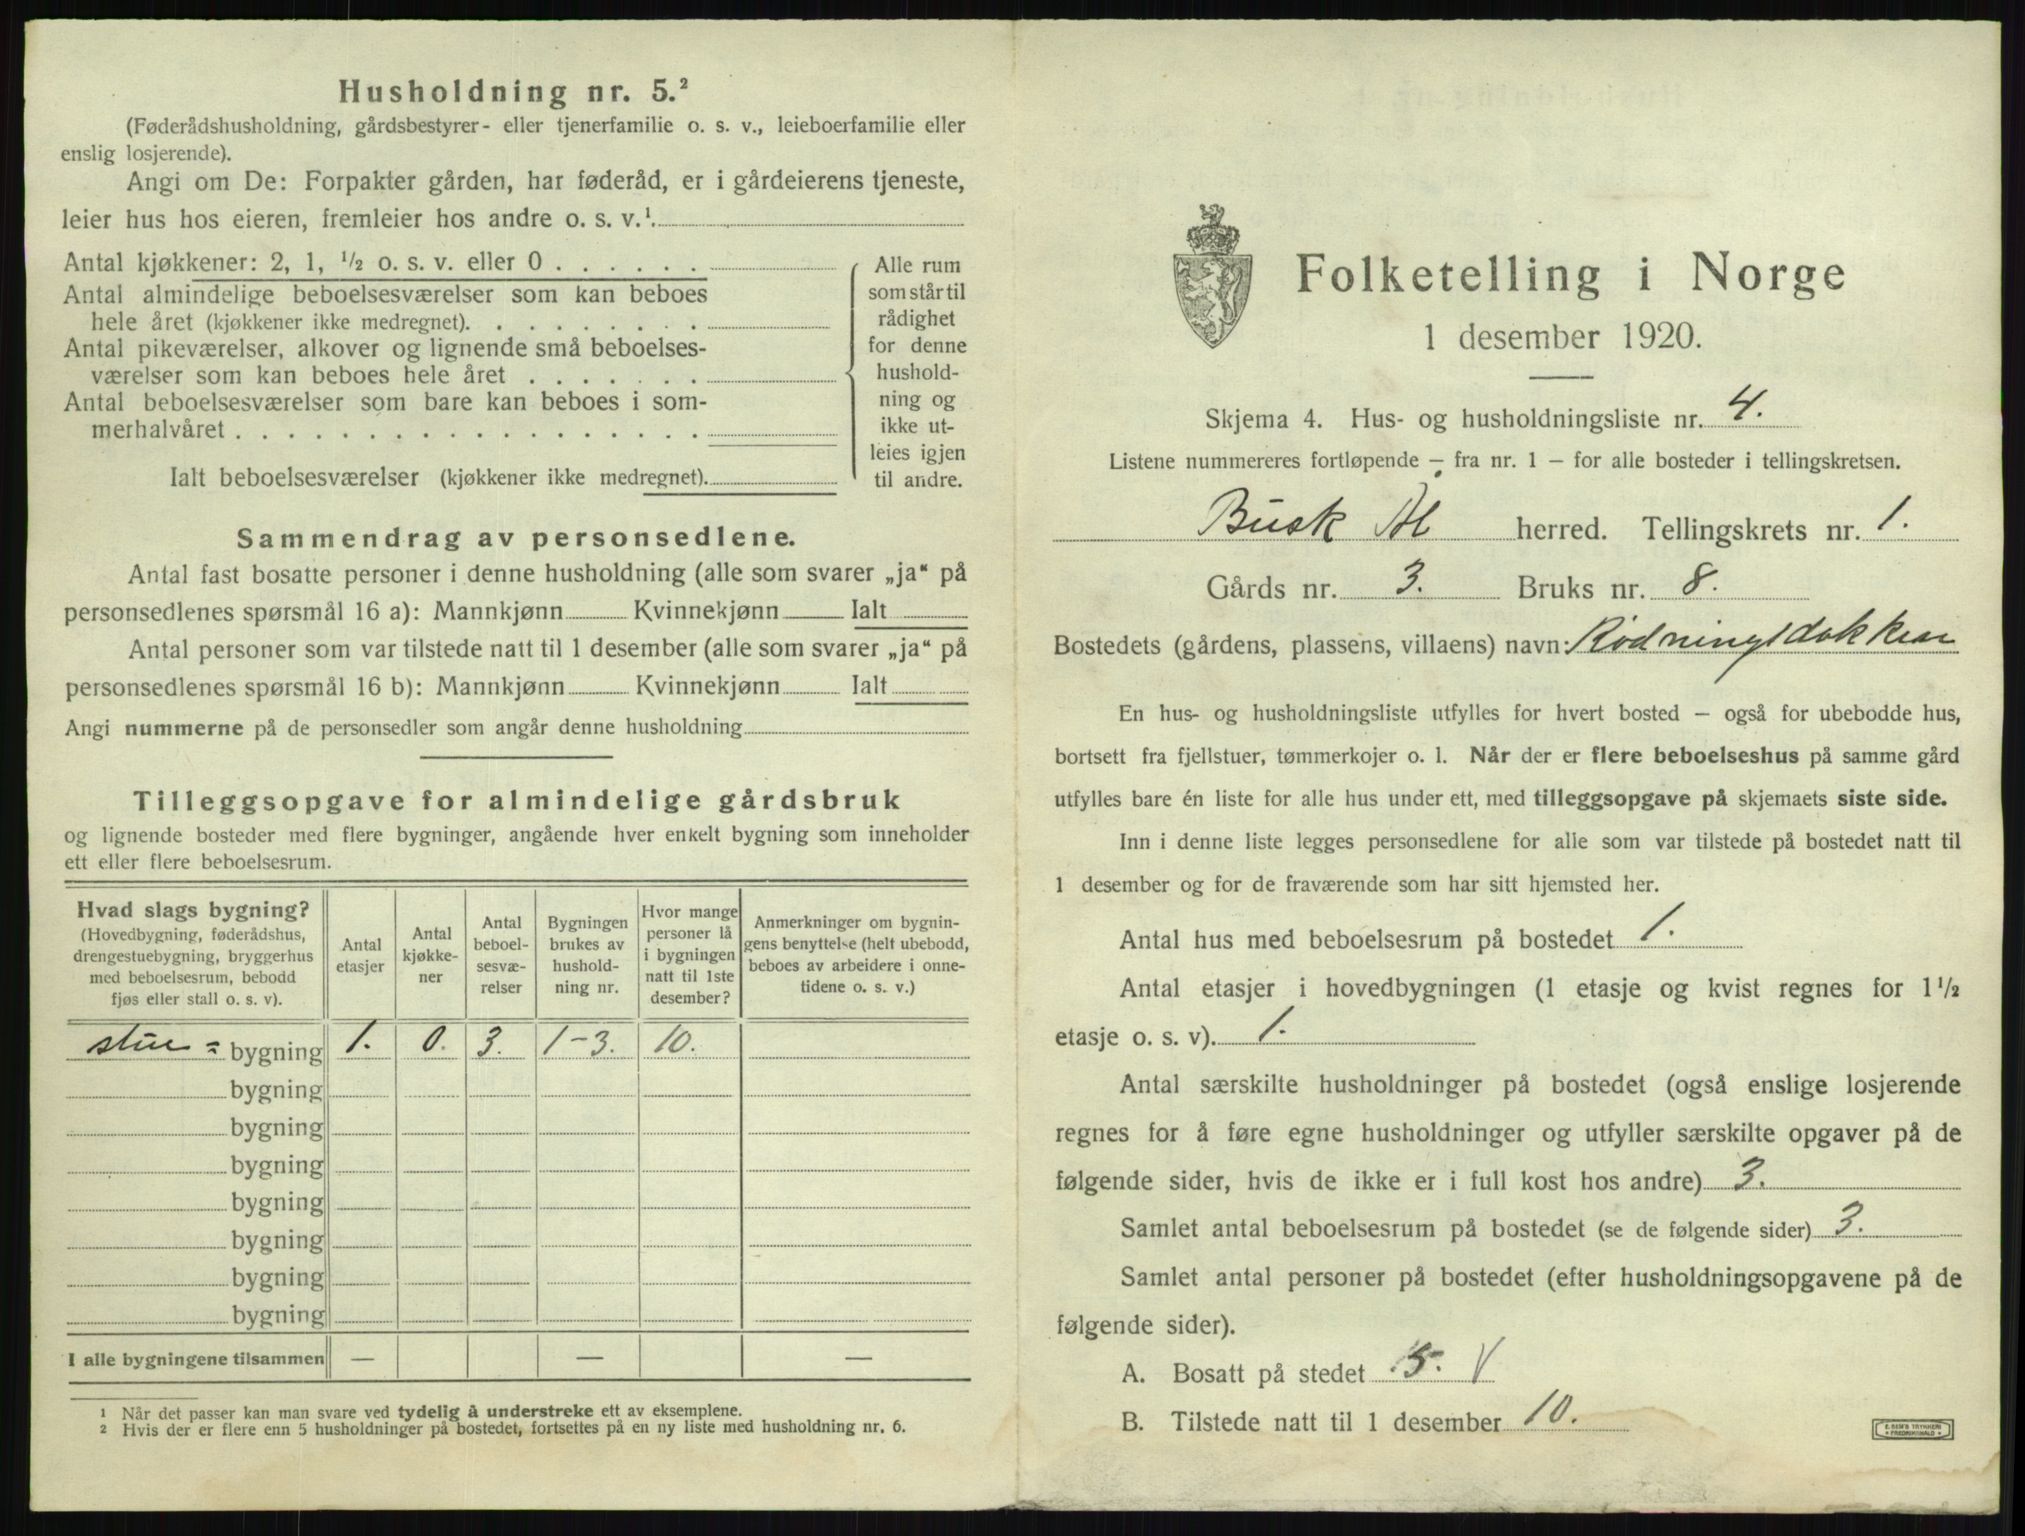 Husholdning nr. 5.²
(Føderådshusholdning, gårdsbestyrer- eller tjenerfamilie o. s. v., leieboerfamilie eller
enslig losjerende).
Angi om De: Forpakter gården, har føderåd, er i gårdeierens tjeneste,
leier hus hos eieren, fremleier hos andre o. s. v.¹.
Antal kjøkkener: 2, 1, ½ o. s. v. eller 0 . . . . . .
Antal almindelige beboelsesværelser som kan beboes
hele året (kjøkkener ikke medregnet). . . . . . . . .
Antal pikeværelser, alkover og lignende små beboelses-
værelser som kan beboes hele året . . . . . . .
Antal beboelsesværelser som bare kan beboes i som-
merhalvåret . . . . . . . . . . . . . . . . . .
Ialt beboelsesværelser (kjøkkener ikke medregnet).
Alle rum
som står til
rådighet
for denne
hushold-
ning og
ikke ut-
leies igjen
til andre.
Sammendrag av personsedlene.
Antal fast bosatte personer i denne husholdning (alle som svarer „ja“ på
personsedlenes spørsmål 16 a): Mannkjønn Kvinnekjønn Ialt
Antal personer som var tilstede natt til 1 desember (alle som svarer „ja“ på
personsedlenes spørsmål 16 b): Mannkjønn Kvinnekjønn Ialt
Angi nummerne på de personsedler som angår denne husholdning
Tilleggsopgave for almindelige gårdsbruk
og lignende bosteder med flere bygninger, angående hver enkelt bygning som inneholder
ett eller flere beboelsesrum.
Hvad slags bygning?
(Hovedbygning, føderådshus,
drengestuebygning, bryggerhus
med beboelsesrum, bebodd
fjøs eller stall o. s. v).
Antal
etasjer
Antal
kjøkke-
ner
Antal
beboel-
sesvæ-
relser
Bygningen
brukes av
hushold-
ning nr.
Hvor mange
personer lå
i bygningen
natt til 1ste
desember?
Anmerkninger om bygnin-
gens benyttelse (helt ubebodd,
beboes av arbeidere i onne-
tidene o. s. v.)
stue = bygning 1. 0. 3. 1-3. 10.
bygning
bygning
bygning
bygning
bygning
bygning
bygning
I alle bygningene tilsammen — — —
¹ Når det passer kan man svare ved tydelig å understreke ett av eksemplene.
² Hvis der er flere enn 5 husholdninger på bostedet, fortsettes på en ny liste med husholdning nr. 6.
Folketelling i Norge
1 desember 1920.
Skjema 4. Hus- og husholdningsliste nr. 4.
Listene nummereres fortløpende — fra nr. 1 — for alle bosteder i tellingskretsen.
Busk Ål herred. Tellingskrets nr. 1.
Gårds nr. 3. Bruks nr. 8.
Bostedets (gårdens, plassens, villaens) navn:
En hus- og husholdningsliste utfylles for hvert bosted — også for ubebodde hus,
bortsett fra fjellstuer, tømmerkojer o. l. Når der er flere beboelseshus på samme gård
utfylles bare én liste for alle hus under ett, med tilleggsopgave på skjemaets siste side.
Inn i denne liste legges personsedlene for alle som var tilstede på bostedet natt til
1 desember og for de fraværende som har sitt hjemsted her.
Antal hus med beboelsesrum på bostedet 1.
Antal etasjer i hovedbygningen (1 etasje og kvist regnes for 1½
etasje o. s. v). 1.
Antal særskilte husholdninger på bostedet (også enslige losjerende
regnes for å føre egne husholdninger og utfyller særskilte opgaver på de
følgende sider, hvis de ikke er i full kost hos andre) 3.
Samlet antal beboelsesrum på bostedet (se de følgende sider) 3.
Samlet antal personer på bostedet (efter husholdningsopgavene på de
følgende sider).
A. Bosatt på stedet 15. V
B. Tilstede natt til 1 desember 10.